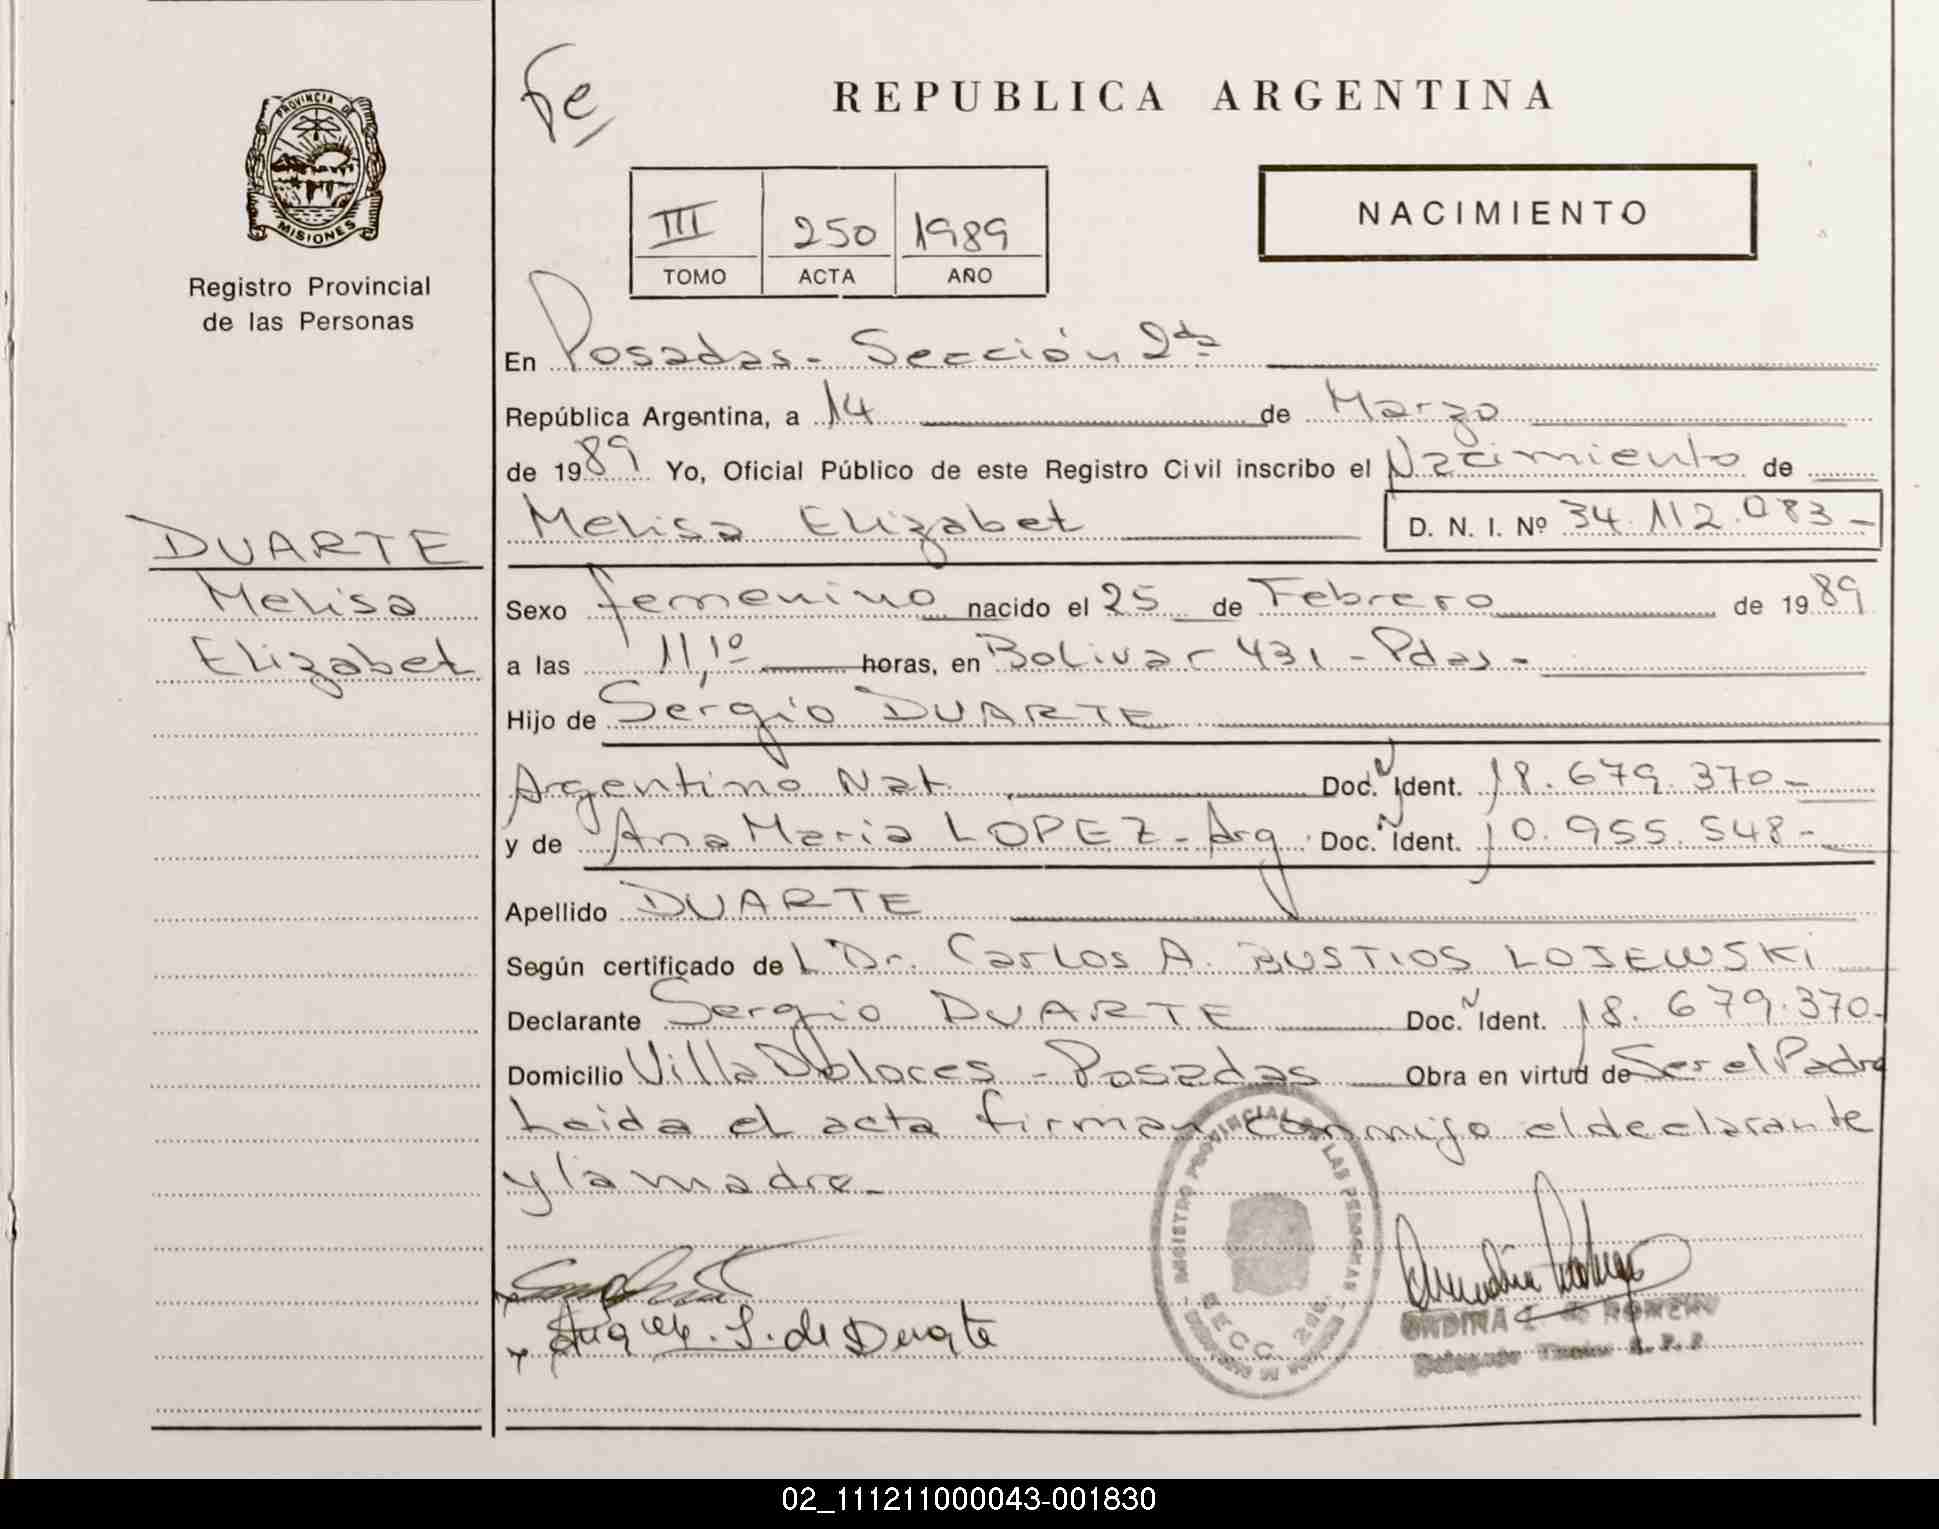 Fe
REPUBLICA ARGENTINA
PROVINCIA DE
MISIONES
Registro Provincial
de las Personas
III 250 1989
TOMO ACTA AÑO
NACIMIENTO
En Posadas - Sección 2da
República Argentina, a 14 de Marzo
de 1989 Yo, Oficial Público de este Registro Civil inscribo el Nacimiento de
DUARTE
Melisa
Elizabet
Melisa Elizabet D. N. I. Nº 34.112.083-
Sexo femenino nacido el 25 de Febrero de 1989
a las 11,10 horas, en Bolivar 431 - Pdas -
Hijo de Sergio DUARTE
Argentino Nat. Doc. Ident. 18.679.370-
y de Ana Maria LOPEZ - Arg. Doc. Ident. 10.955.548-
Apellido DUARTE
Según certificado del Dr. Carlos A. BUSTIOS LOJEWSKI
Declarante Sergio DUARTE Doc. Ident. 18.679.370-
Domicilio Villa Dolores - Posadas Obra en virtud de Ser el Padre
Leida el acta firman conmigo el declarante
y la madre -
REGISTRO PROVINCIAL DE LAS PERSONAS
SECC. 2da.
L. de Duarte
ROMERO
02_111211000043-001830